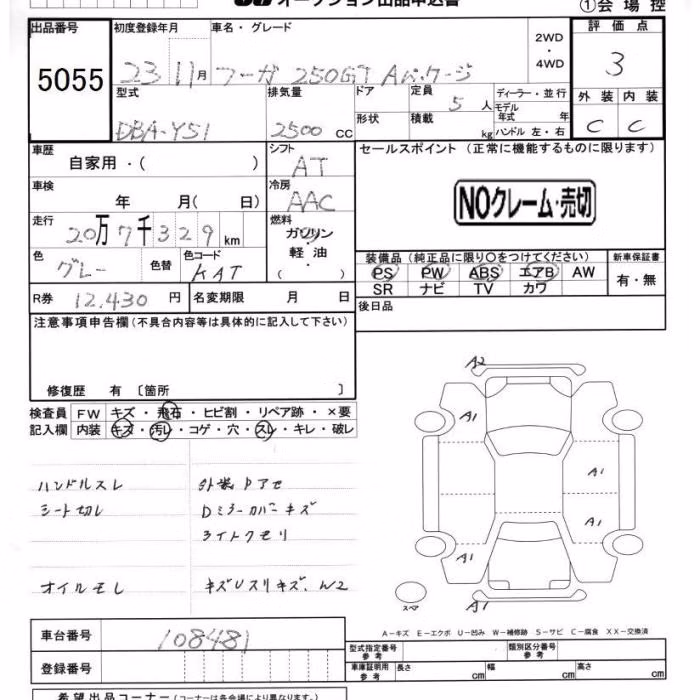 オークション出品申込書
①会場控
出品番号 初度登録年月 車名・グレード 2WD ・ 4WD 評価点
5055 23 11月 フーガ 250GT Aパッケージ 3
型式 排気量 ドア 定員 5人 ディーラー・並行 外装 内装
形状 積載 kg モデル年式 年 ハンドル 左・右
DBA-Y51 2500cc C C
車歴 シフト セールスポイント (正常に機能するものに限ります)
自家用・( ) AT
車検 冷房
年 月( 日) AAC NOクレーム・売切
走行 燃料
20万7千329km ガソリン
軽油
( )
装備品 (純正品に限り○をつけてください) 新車保証書
色 色替 色コード
グレー KAT
PS PW ABS エアB AW 有・無
SR ナビ TV カワ
R券 12,430円 名変期限 月 日 後日品
注意事項申告欄(不具合内容等は具体的に記入して下さい)
修復歴 有 〔箇所 〕
検査員 FW キズ・飛石・ヒビ割・リペア跡・×要
記入欄 内装 キズ・汚レ・コゲ・穴・スレ・キレ・破レ
ハンドルスレ
シート切レ
オイルモレ
外装Pアセ
Dミラーカバーキズ
ライトクモリ
キズUスリキズ、W2
A2
A1
A1
A1
A1
A1
スペア
A-キズ E-エクボ U-凹み W-補修跡 S-サビ C-腐食 XX-交換済
車台番号 108481
型式指定番号 参考 類別区分番号 参考
登録番号
車庫証明用 参考 長さ cm 幅 cm 高さ cm
希望出品コーナー(コーナーは各会場により異なります。)